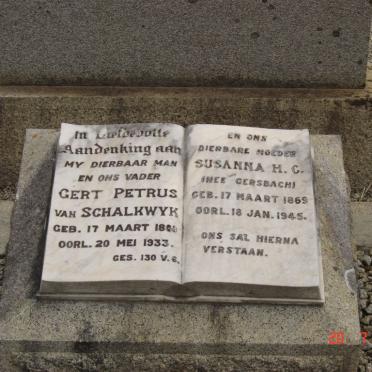 In Liefdevolle
Aandenking aan
MY DIERBAAR MAN
EN ONS VADER
GERT PETRUS
VAN SCHALKWYK
GEB. 17 MAART
OORL. 20 MEI 1933.
GES. 130 V.6.
EN ONS
DIERBARE MOEDER
SUSANNA H. C.
(NEE GERSBACH)
GEB. 17 MAART 1869
OORL. 18 JAN. 1945.
ONS SAL HIERNA
VERSTAAN.